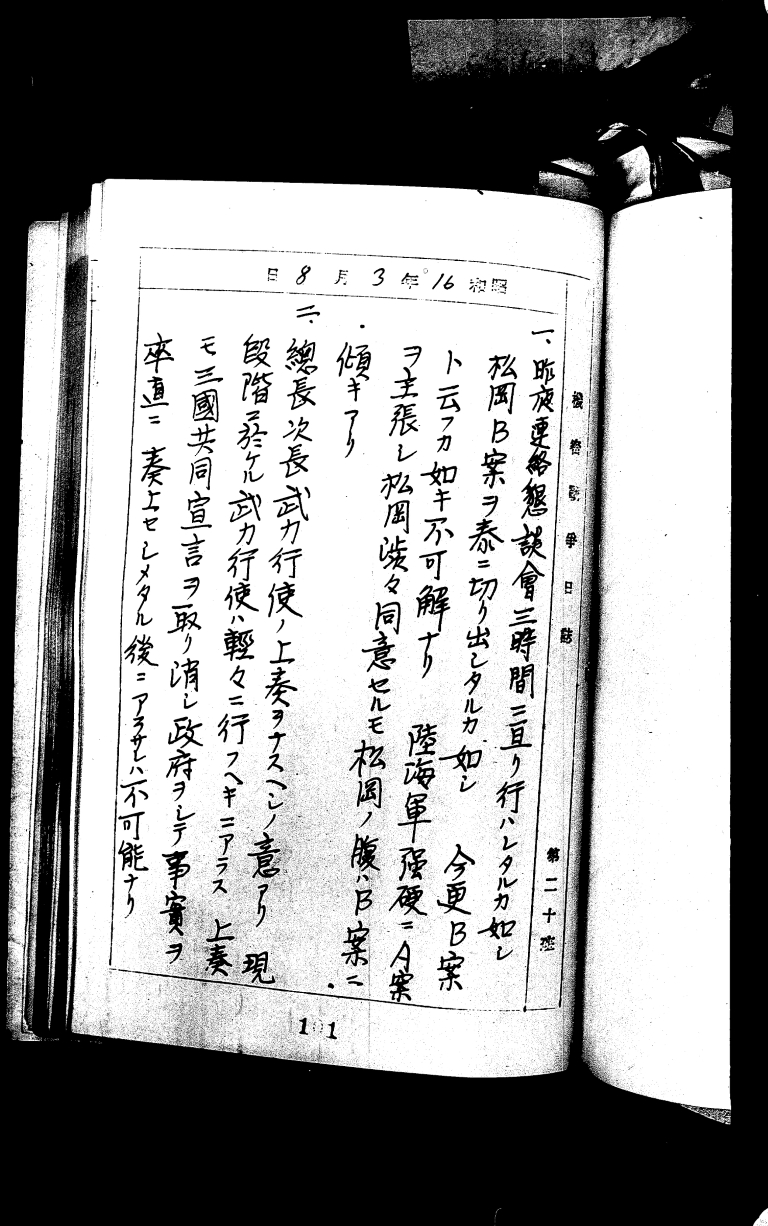 機密戰爭日誌 第二十班
昭和16年3月8日
一、昨夜連絡懇談會三時間ニ亘リ行ハレタルカ如シ
松岡B案ヲ泰ニ切リ出シタルカ如シ 今更B案
ト云フカ如キ不可解ナリ 陸海軍强硬ニA案
ヲ主張シ松岡澁々同意セルモ松岡ノ腹ハB案ニ
傾キアリ
二、總長次長武力行使ノ上奏ヲナスヘシノ意アリ 現
段階ニ於ケル武力行使ハ輕々ニ行フヘキニアラス 上奏
モ三國共同宣言ヲ取リ消シ政府ヲシテ事實ヲ
卒直ニ奏上セシメタル後ニアラサレハ不可能ナリ
101